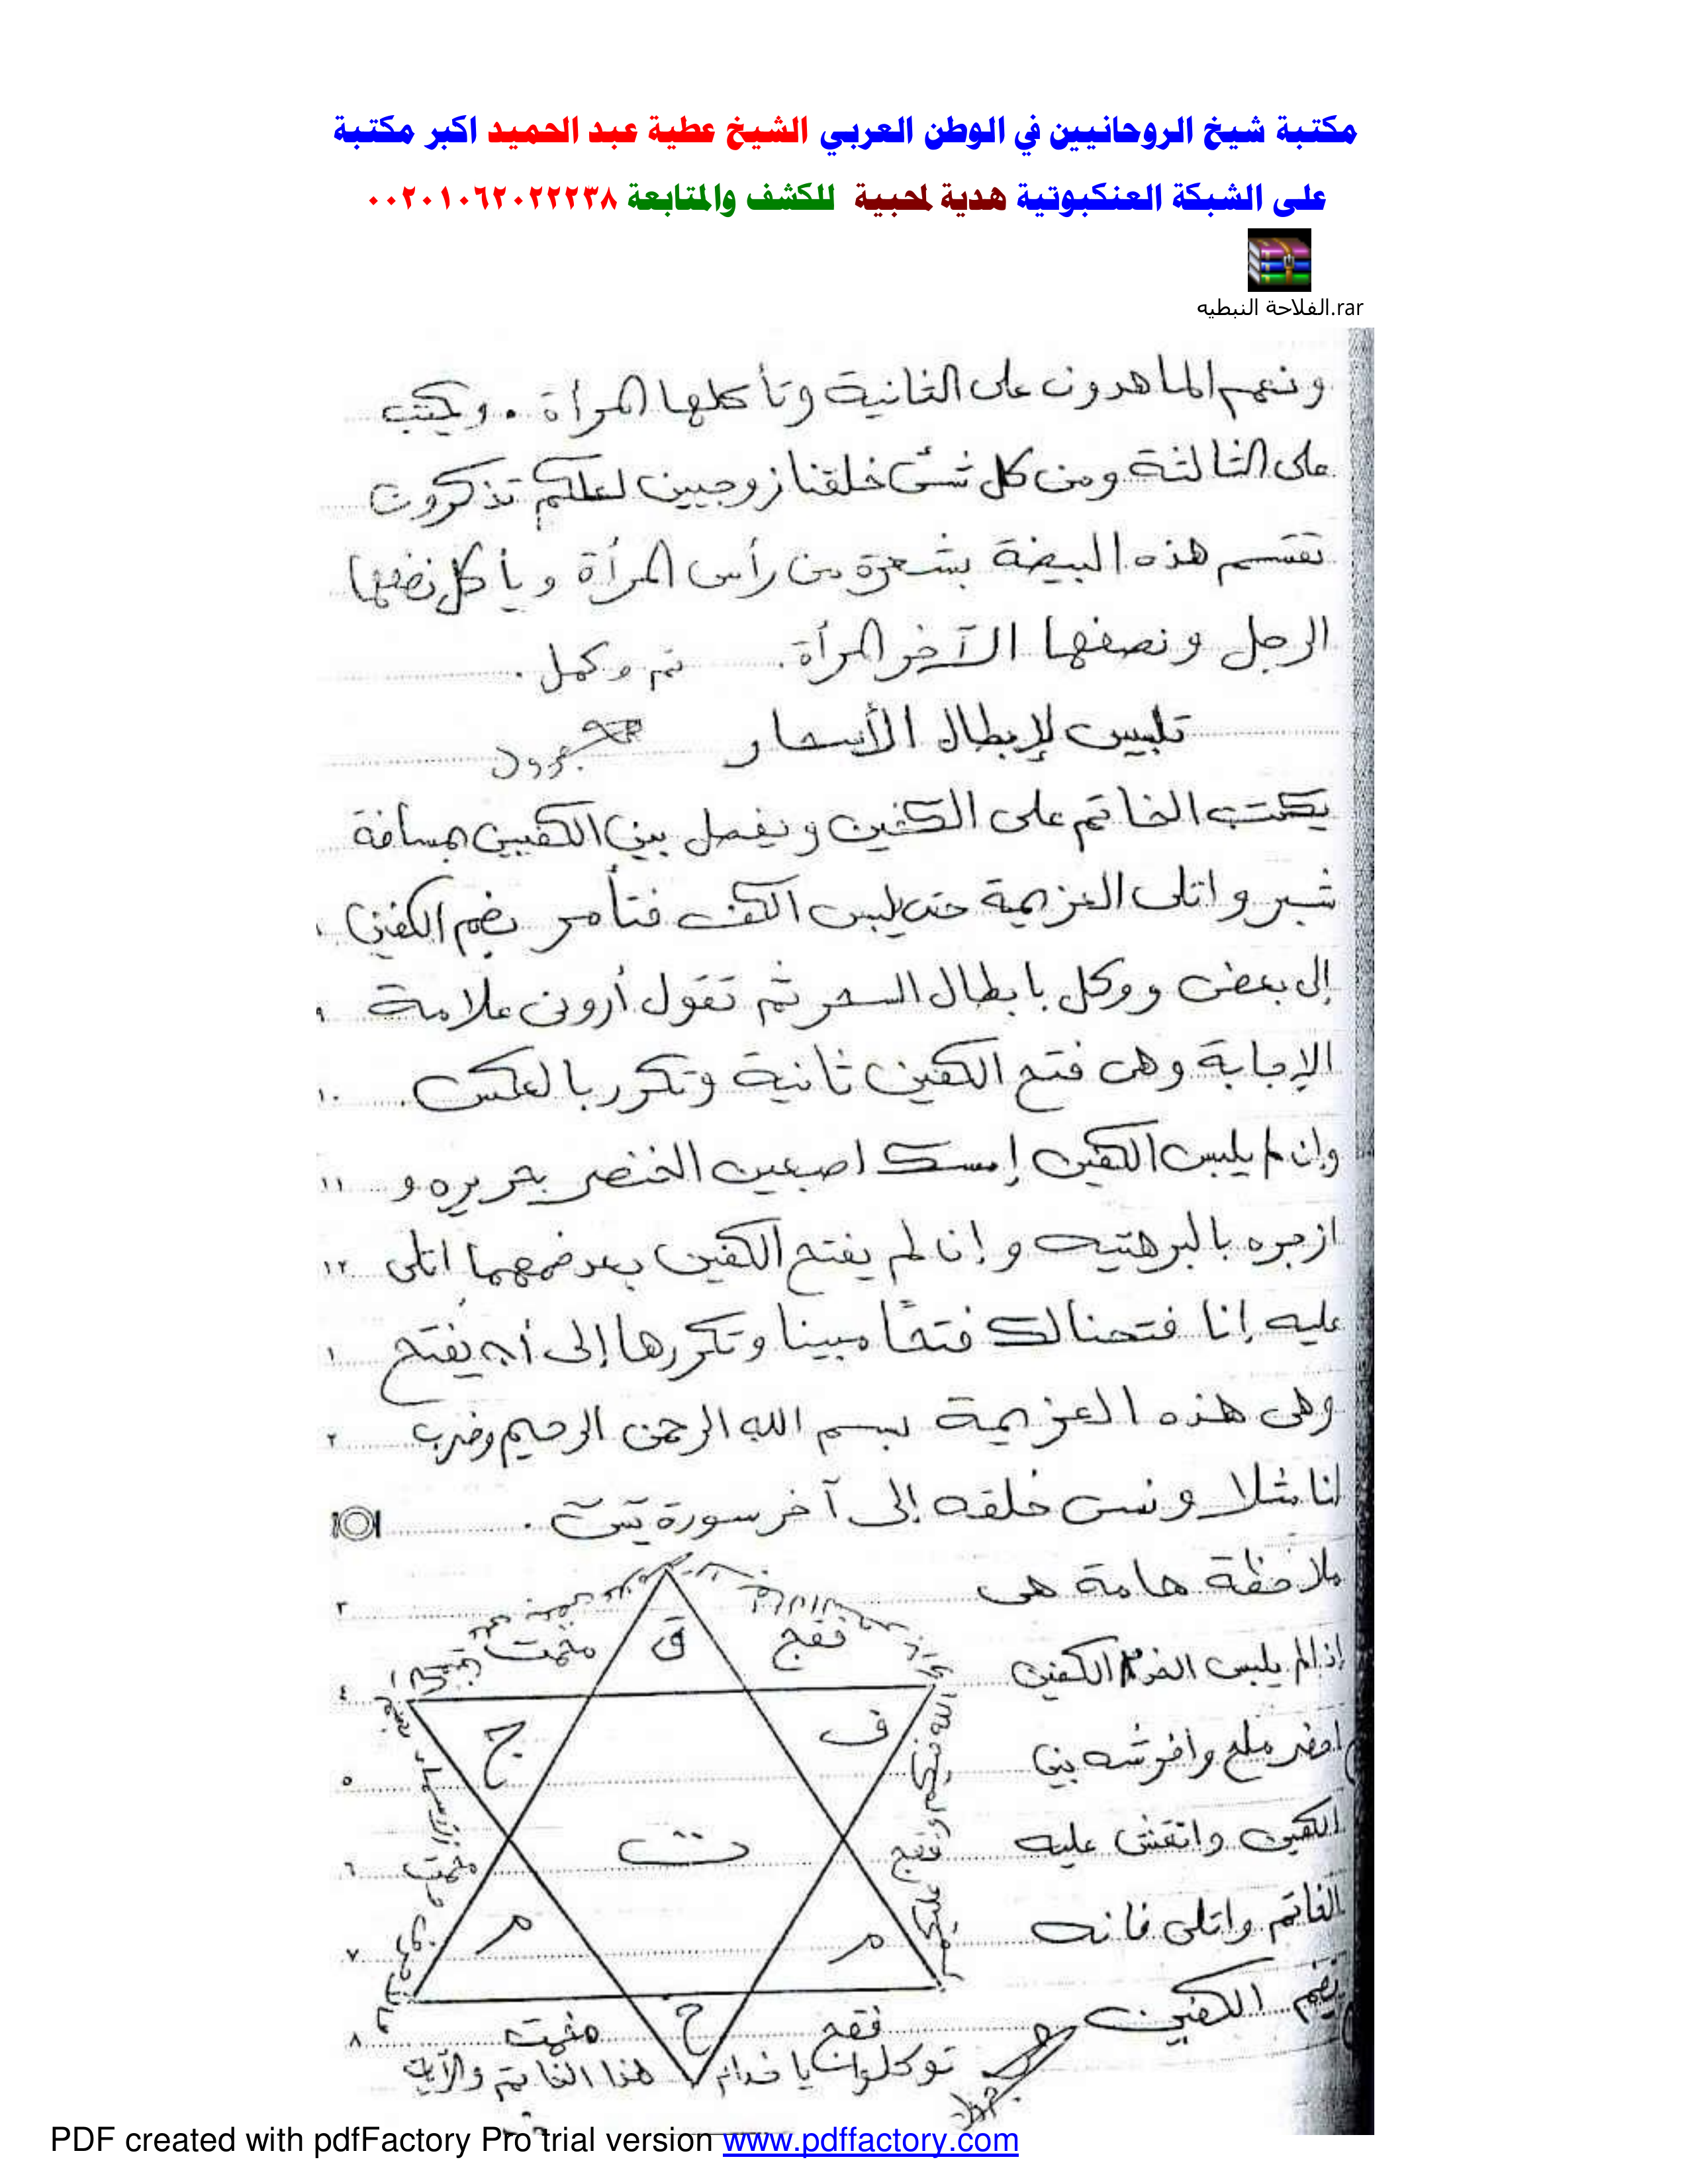 مكتبة شيخ الروحانيين في الوطن العربي الشيخ عطية عبد الحميد اكبر مكتبة
على الشبكة العنكبوتية هدية لمحبية للكشف والمتابعة ٠٠٢٠١٠٦٢٠٢٢٢٣٨
الفلاحة النبطيه.rar
ونعم الماهدون على الثانية وتأكلها المرأة . ويكتب
على الثالثة ومن كل شئ خلقنا زوجيين لعلكم تذكرون
تقسم هذه البيضة بشعرة من رأس المرأة ويأكل نصفها
الرجل ونصفها الآخر المرأة. تم وكمل .
تلبيس لإبطال الأسحار
يكتب الخاتم على الكفين ويفصل بين الكفيين بمسافة
شبر واتلى العزيمة حتى يلبس الكف فتأمر بضم الكفين
إلى بعض ووكل بابطال السحر ثم تقول أرونى علامة ٩
الإجابة وهى فتح الكفين ثانية وتكرر بالعكس. ١٠
وإن لم يلبس الكفين إمسك اصبعين الخنصر بحريره و ١١
ازجره بالبرهتيه وإن لم يفتح الكفين بعد ضمهما اتلى ١٢
عليه إنا فتحنا لك فتحًا مبينا وتكررها إلى أن يفتح ١
وهى هذه العزيمة بسم الله الرحمن الرحيم وضرب ٢
لنا مثلا ونسى خلقه إلى آخر سورة يس .
ملاحظة هامة هى ٣
إذا لم يلبس الكفين ٤
احضر ملح وافرشه بين ٥
الكفين وانقش عليه ٦
الخاتم واتلى فانه ٧
يضم الكفين ٨
فقج
ق
ف
ج
ت
فقج
م
م
فقج
ح
توكلوا يا خدام هذا الخاتم والآية
PDF created with pdfFactory Pro trial version www.pdffactory.com